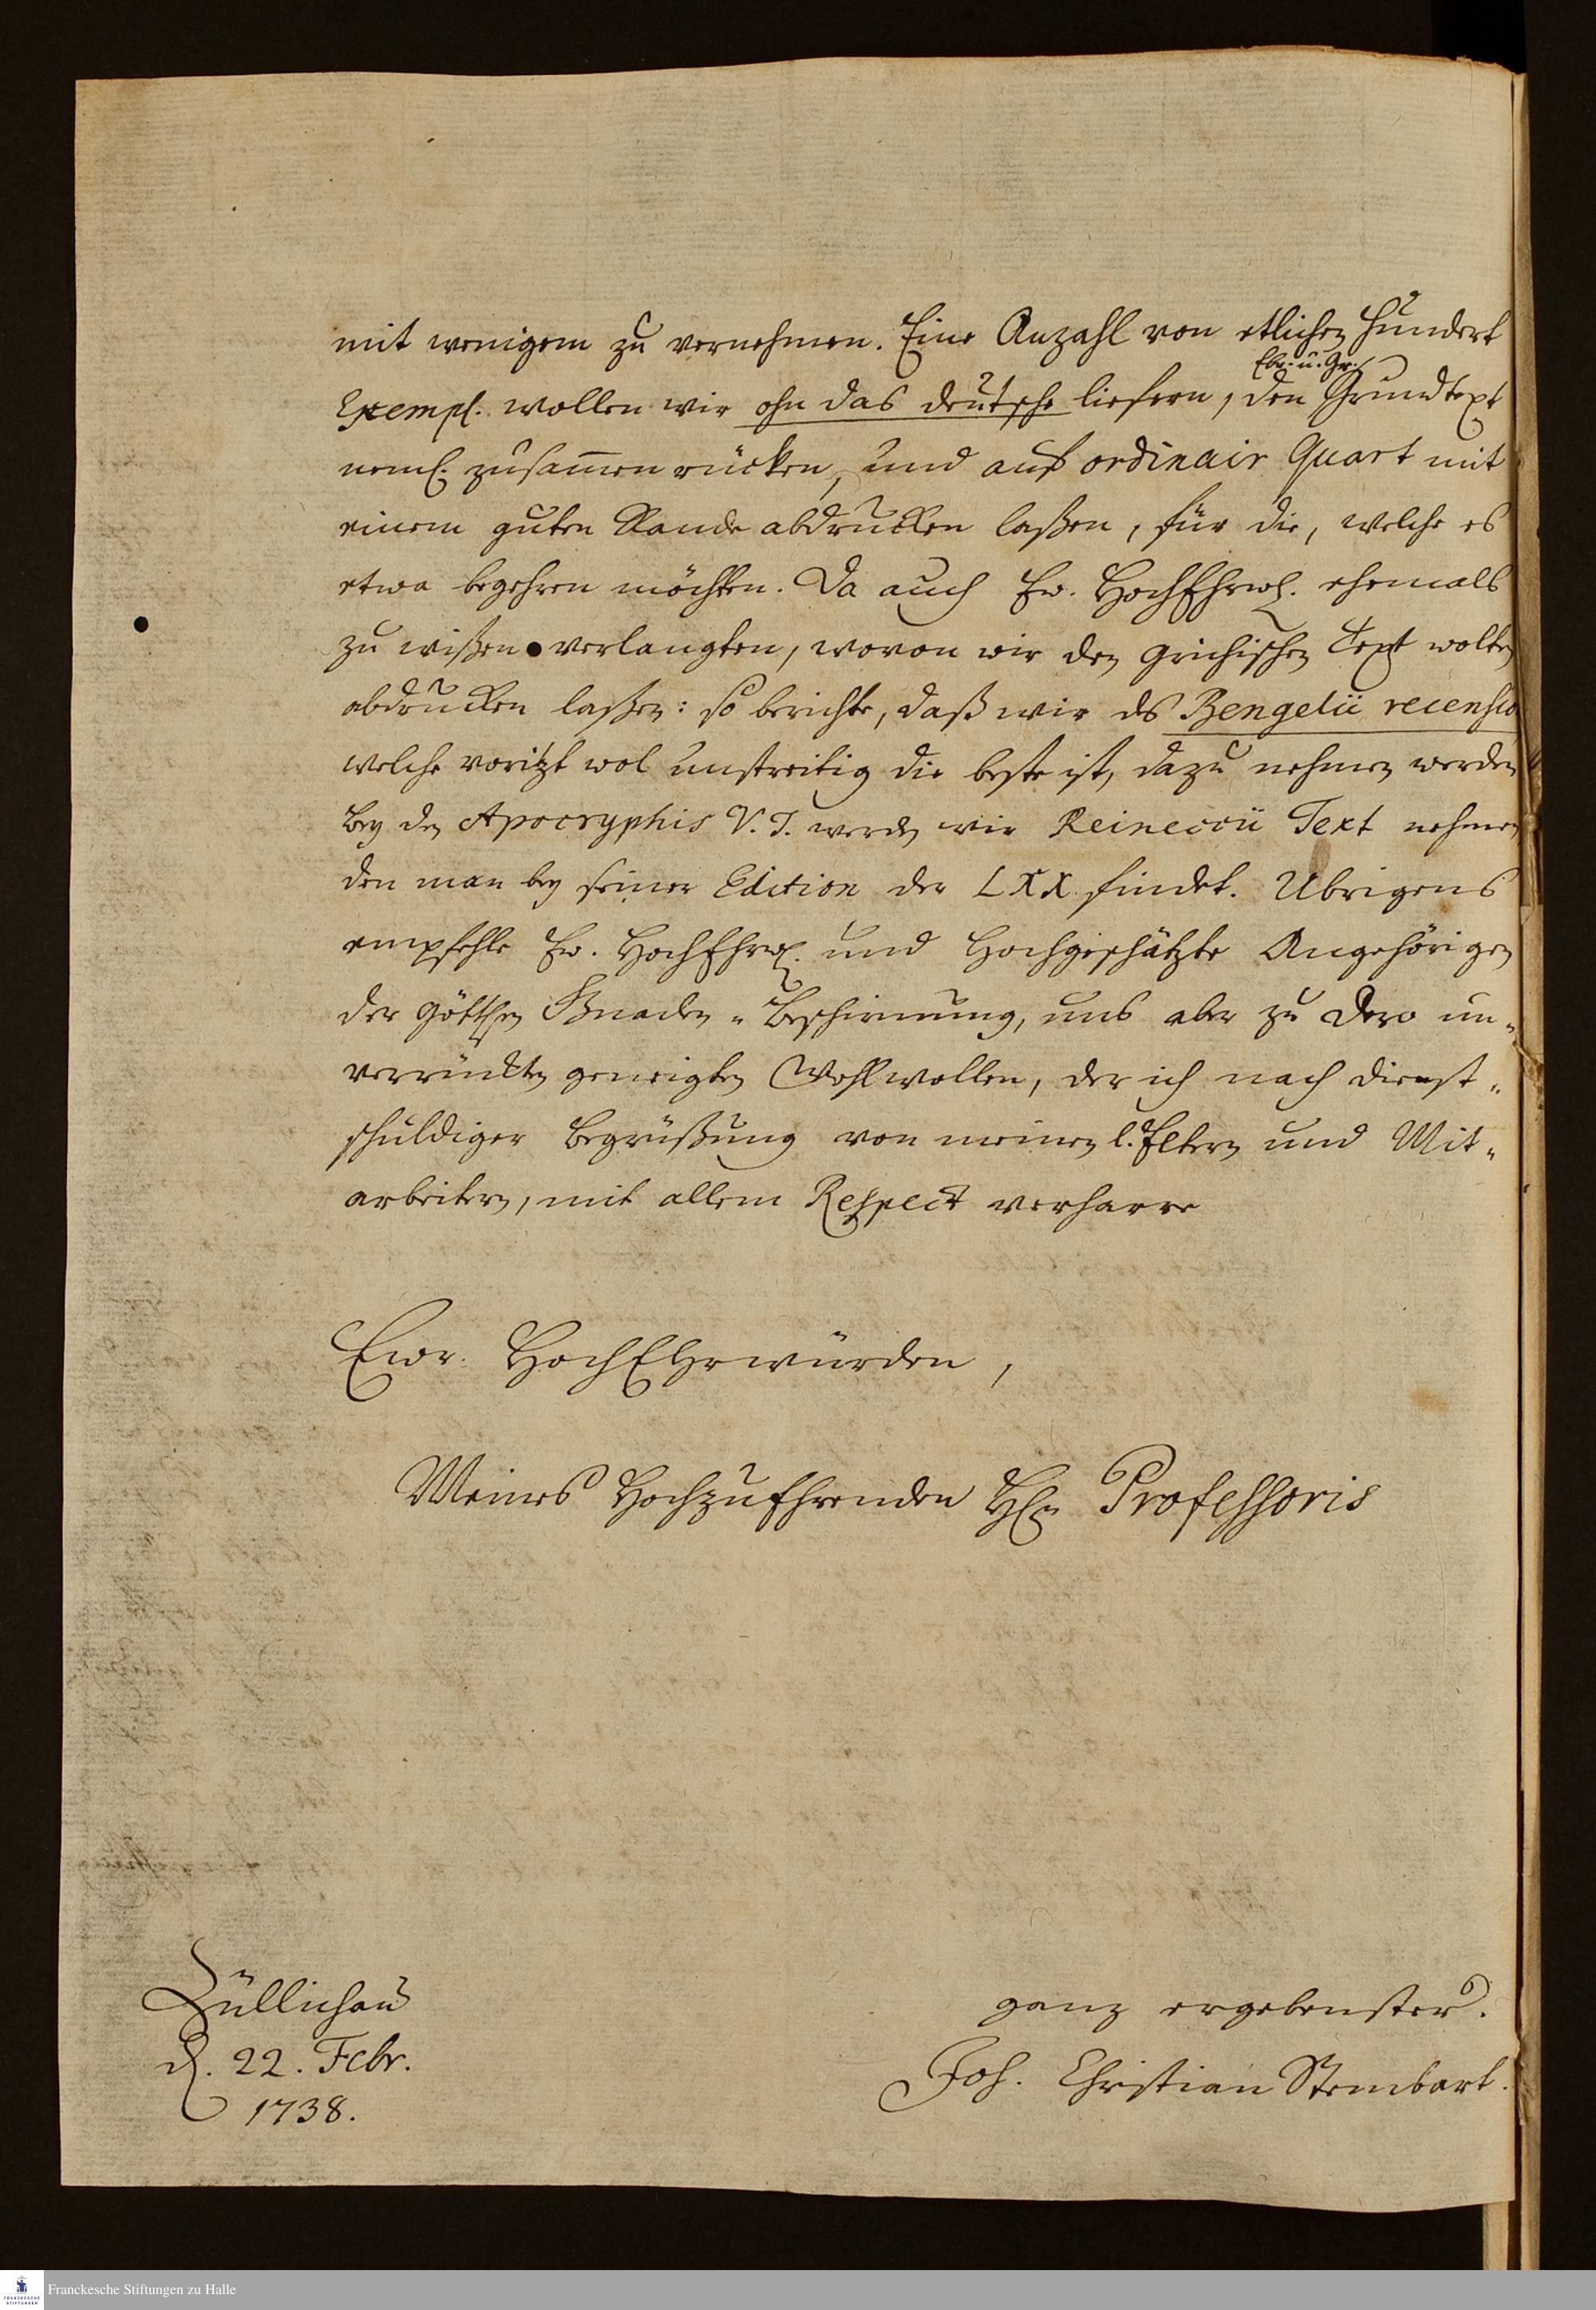 mit wenigem zu vernehmen. Eine Anzahl von etlichen Hundert
Ebr. u. Gr.
Exempl. wollen wir ohn das deutsche liefern, den Grundtext
neml. zusam̄en rücken, und auf ordinair Quart mit
einem guten Rande abdrucken laßen, für die, welche es
etwa begehren möchten. Da auch Ew. HochEhrw. ehemals
zu wißen verlangten, wovon wir den grichischen Text wolten
abdrucken laßen: so berichte, daß wir des Bengelii recension
welche voritzt wol unstreitig die beste ist, dazu nehmen werden
Bey den Apocryphis V. T. werden wir Reineccii Text nehmen
den man bey seiner Edition der LXX findet. Ubrigens
empfehle Ew. HochEhrw. und Hochgeschätzte Angehörigen
der göttlichen Gnaden-Beschirmung, uns aber zu Dero un-
verrückten geneigten Wohlwollen, der ich nach dienst-
schuldiger Begrüßung von meinen l. Eltern und Mit-
arbeitern, mit allem Respect verharre
Ewr. HochEhrwürden,
Meines HochzuEhrenden Hrn Professoris
Züllichau
d. 22. Febr.
1738.
ganz ergebenster.
Joh. Christian Steinbart.
FRANCKESCHE STIFTUNGEN
Franckesche Stiftungen zu Halle